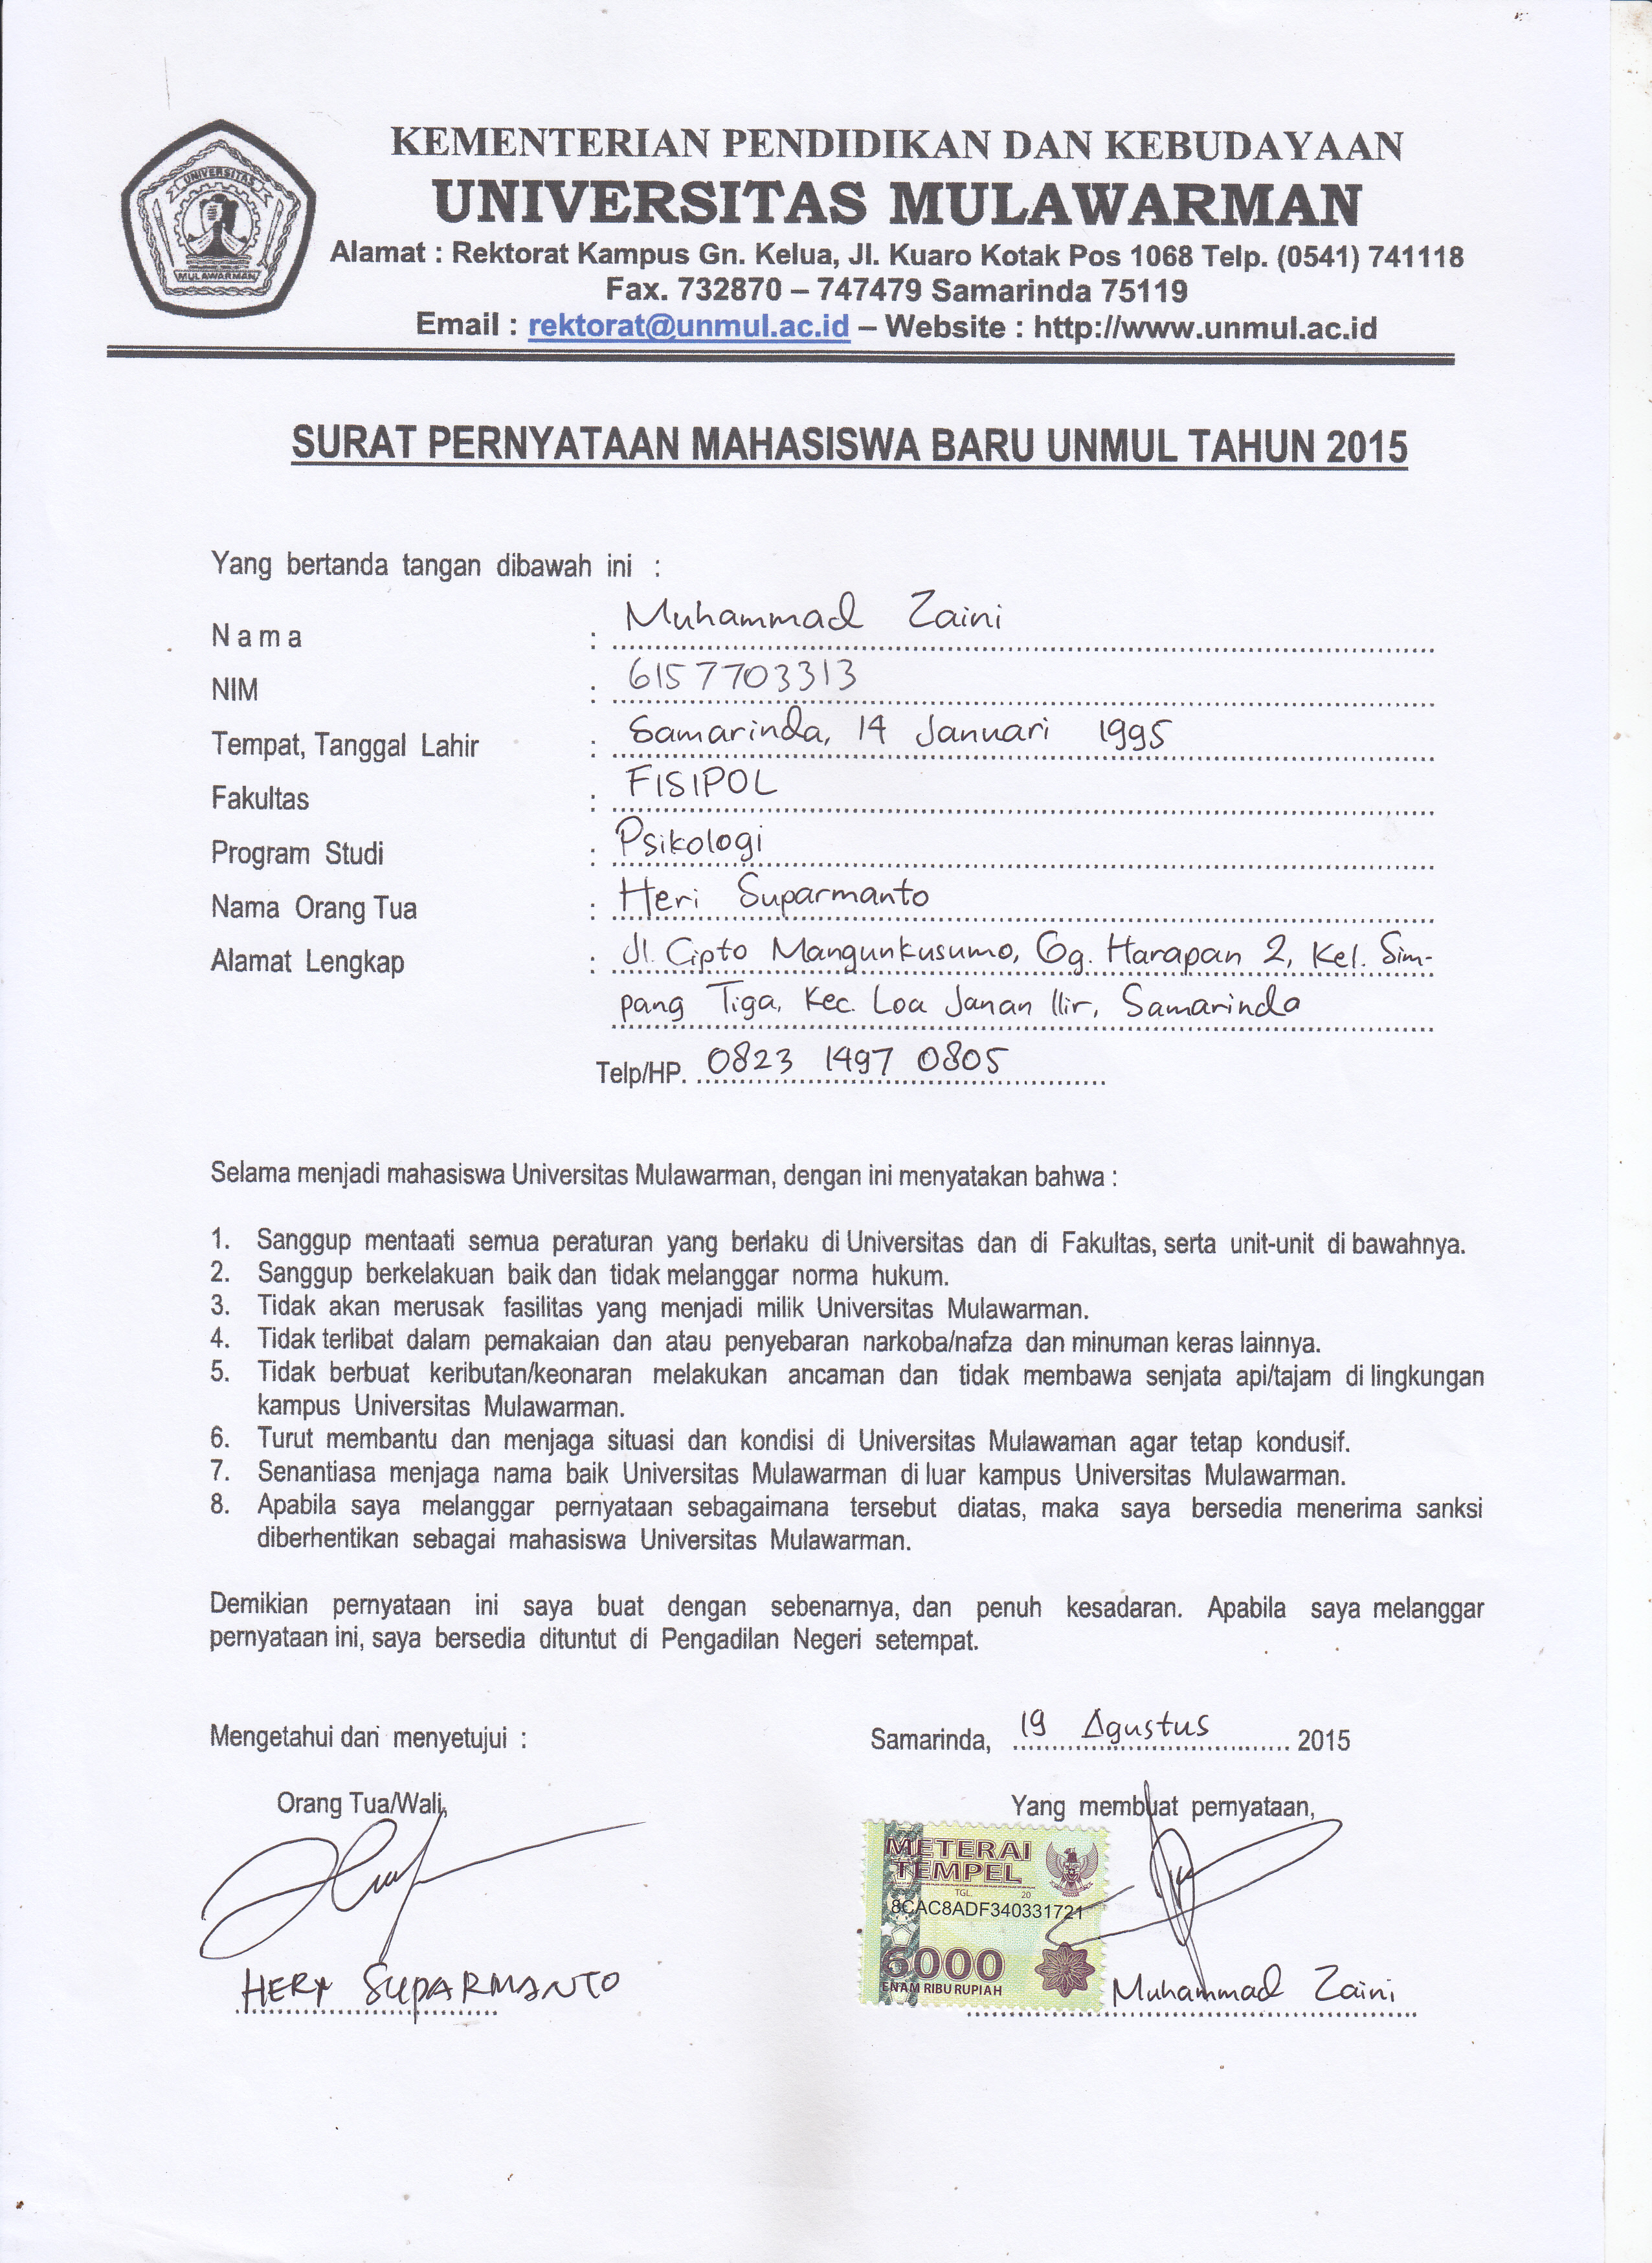 UNIVERSITAS
MULAWARMAN
KEMENTERIAN PENDIDIKAN DAN KEBUDAYAAN
UNIVERSITAS MULAWARMAN
Alamat : Rektorat Kampus Gn. Kelua, Jl. Kuaro Kotak Pos 1068 Telp. (0541) 741118
Fax. 732870 – 747479 Samarinda 75119
Email : rektorat@unmul.ac.id – Website : http://www.unmul.ac.id
SURAT PERNYATAAN MAHASISWA BARU UNMUL TAHUN 2015
Yang bertanda tangan dibawah ini :
N a m a : Muhammad Zaini
NIM : 6157703313
Tempat, Tanggal Lahir : Samarinda, 14 Januari 1995
Fakultas : FISIPOL
Program Studi : Psikologi
Nama Orang Tua : Heri Suparmanto
Alamat Lengkap : Jl. Cipto Mangunkusumo, Gg. Harapan 2, Kel. Sim-
pang Tiga, Kec. Loa Janan Ilir, Samarinda
Telp/HP. 0823 1497 0805
Selama menjadi mahasiswa Universitas Mulawarman, dengan ini menyatakan bahwa :
1. Sanggup mentaati semua peraturan yang berlaku di Universitas dan di Fakultas, serta unit-unit di bawahnya.
2. Sanggup berkelakuan baik dan tidak melanggar norma hukum.
3. Tidak akan merusak fasilitas yang menjadi milik Universitas Mulawarman.
4. Tidak terlibat dalam pemakaian dan atau penyebaran narkoba/nafza dan minuman keras lainnya.
5. Tidak berbuat keributan/keonaran melakukan ancaman dan tidak membawa senjata api/tajam di lingkungan
kampus Universitas Mulawarman.
6. Turut membantu dan menjaga situasi dan kondisi di Universitas Mulawaman agar tetap kondusif.
7. Senantiasa menjaga nama baik Universitas Mulawarman di luar kampus Universitas Mulawarman.
8. Apabila saya melanggar pernyataan sebagaimana tersebut diatas, maka saya bersedia menerima sanksi
diberhentikan sebagai mahasiswa Universitas Mulawarman.
Demikian pernyataan ini saya buat dengan sebenarnya, dan penuh kesadaran. Apabila saya melanggar
pernyataan ini, saya bersedia dituntut di Pengadilan Negeri setempat.
Mengetahui dan menyetujui :
Samarinda, 19 Agustus 2015
Orang Tua/Wali,
Yang membuat pernyataan,
METERAI
TEMPEL
TGL. 20
8CAC8ADF340331721
6000
ENAM RIBU RUPIAH
HERY SUPARMANTO
Muhammad Zaini